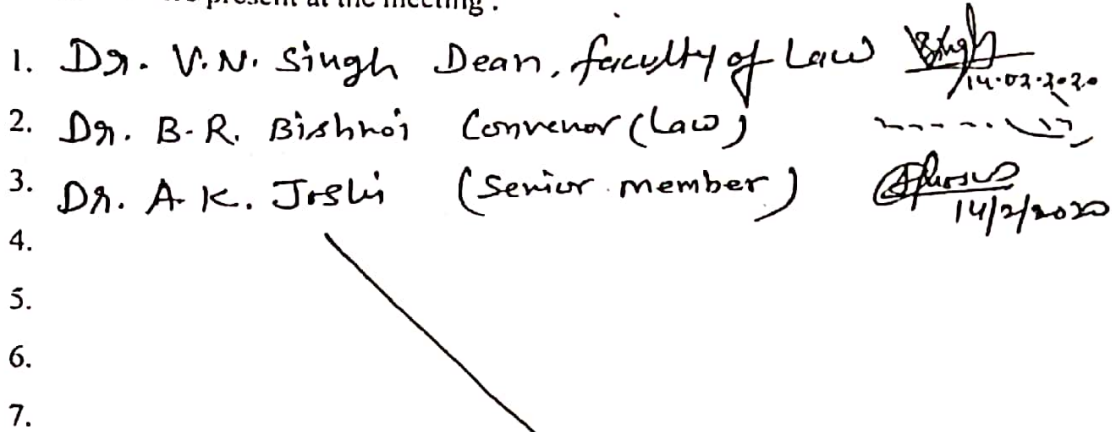 present at the meeting :
1. Dr. V.N. Singh Dean, faculty of Law
14.02.2020
2. Dr. B.R. Bishnoi Convenor (Law)
3. Dr. A.K. Joshi (Senior member)
14/2/2020
4.
5.
6.
7.